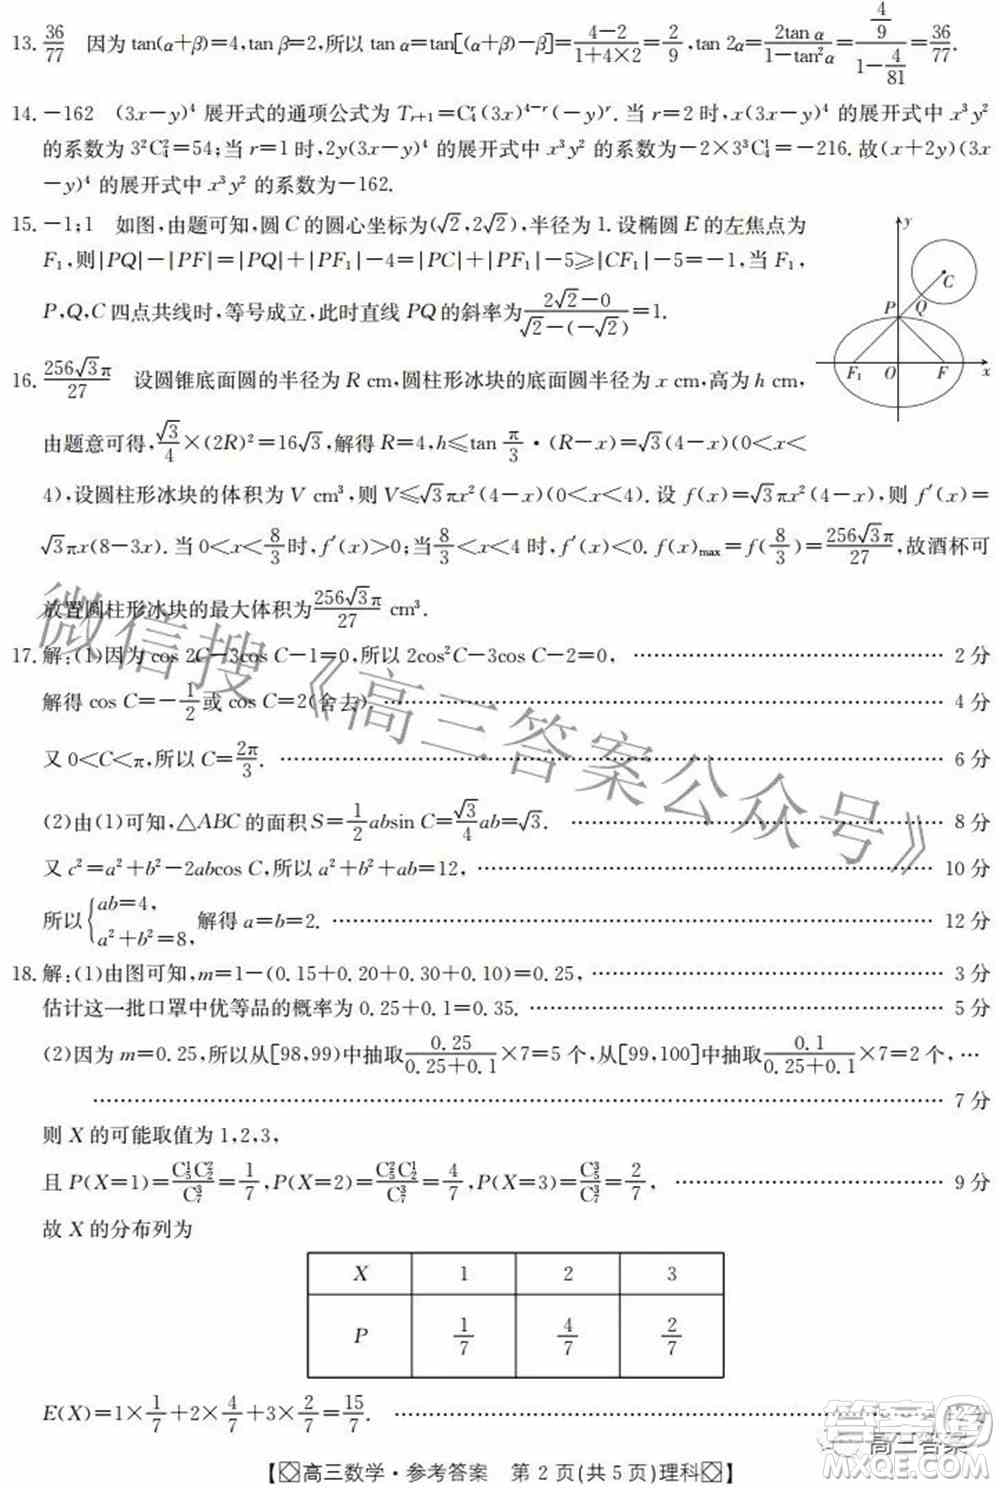 13. 36/77　因为 tan(α+β)=4,tan β=2,所以 tan α=tan[(α+β)-β]=(4-2)/(1+4×2)=2/9,tan 2α=2tan α/(1-tan²α)=(4/9)/(1-4/81)=36/77.
14. -162　(3x-y)⁴ 展开式的通项公式为 Tᵣ₊₁=C₄ʳ(3x)⁴⁻ʳ(-y)ʳ. 当 r=2 时,x(3x-y)⁴ 的展开式中 x³y²
的系数为 3²C₄²=54;当 r=1 时,2y(3x-y)⁴ 的展开式中 x³y² 的系数为-2×3³C₄¹=-216. 故(x+2y)(3x
-y)⁴ 的展开式中 x³y² 的系数为-162.
15. -1;1　如图,由题可知,圆 C 的圆心坐标为(√2,2√2),半径为 1. 设椭圆 E 的左焦点为
F₁,则|PQ|-|PF|=|PQ|+|PF₁|-4=|PC|+|PF₁|-5≥|CF₁|-5=-1,当 F₁,
P,Q,C 四点共线时,等号成立,此时直线 PQ 的斜率为(2√2-0)/(√2-(-√2))=1.
y
C
P
Q
F₁
O
F
x
16. 256√3π/27　设圆锥底面圆的半径为 R cm,圆柱形冰块的底面圆半径为 x cm,高为 h cm,
由题意可得,√3/4×(2R)²=16√3,解得 R=4,h≤tan π/3·(R-x)=√3(4-x)(0<x<
4),设圆柱形冰块的体积为 V cm³,则 V≤√3πx²(4-x)(0<x<4). 设 f(x)=√3πx²(4-x),则 f′(x)=
√3πx(8-3x). 当 0<x<8/3时,f′(x)>0;当8/3<x<4 时,f′(x)<0. f(x)max=f(8/3)=256√3π/27,故酒杯可
放置圆柱形冰块的最大体积为256√3π/27 cm³.
17. 解:(1)因为 cos 2C-3cos C-1=0,所以 2cos²C-3cos C-2=0, ………… 2 分
解得 cos C=-1/2或 cos C=2(舍去). ………… 4 分
又 0<C<π,所以 C=2π/3. ………… 6 分
(2)由(1)可知,△ABC 的面积 S=1/2absin C=√3/4ab=√3. ………… 8 分
又 c²=a²+b²-2abcos C,所以 a²+b²+ab=12, ………… 10 分
所以{ab=4, a²+b²=8, 解得 a=b=2. ………… 12 分
18. 解:(1)由图可知,m=1-(0.15+0.20+0.30+0.10)=0.25, ………… 3 分
估计这一批口罩中优等品的概率为 0.25+0.1=0.25. ………… 5 分
(2)因为 m=0.25,所以从[98,99)中抽取0.25/(0.25+0.1)×7=5 个,从[99,100]中抽取0.1/(0.25+0.1)×7=2 个,…
………… 7 分
则 X 的可能取值为 1,2,3,
且 P(X=1)=C₅¹C₂²/C₇³=1/7,P(X=2)=C₅²C₂¹/C₇³=4/7,P(X=3)=C₅³/C₇³=2/7, ………… 9 分
故 X 的分布列为
X 1 2 3
P 1/7 4/7 2/7
E(X)=1×1/7+2×4/7+3×2/7=15/7. ………… 12 分
【◇高三数学·参考答案　第 2 页(共 5 页)理科◇】
微信搜《高三答案公众号》
高三答案
答案圈
MXQE.COM